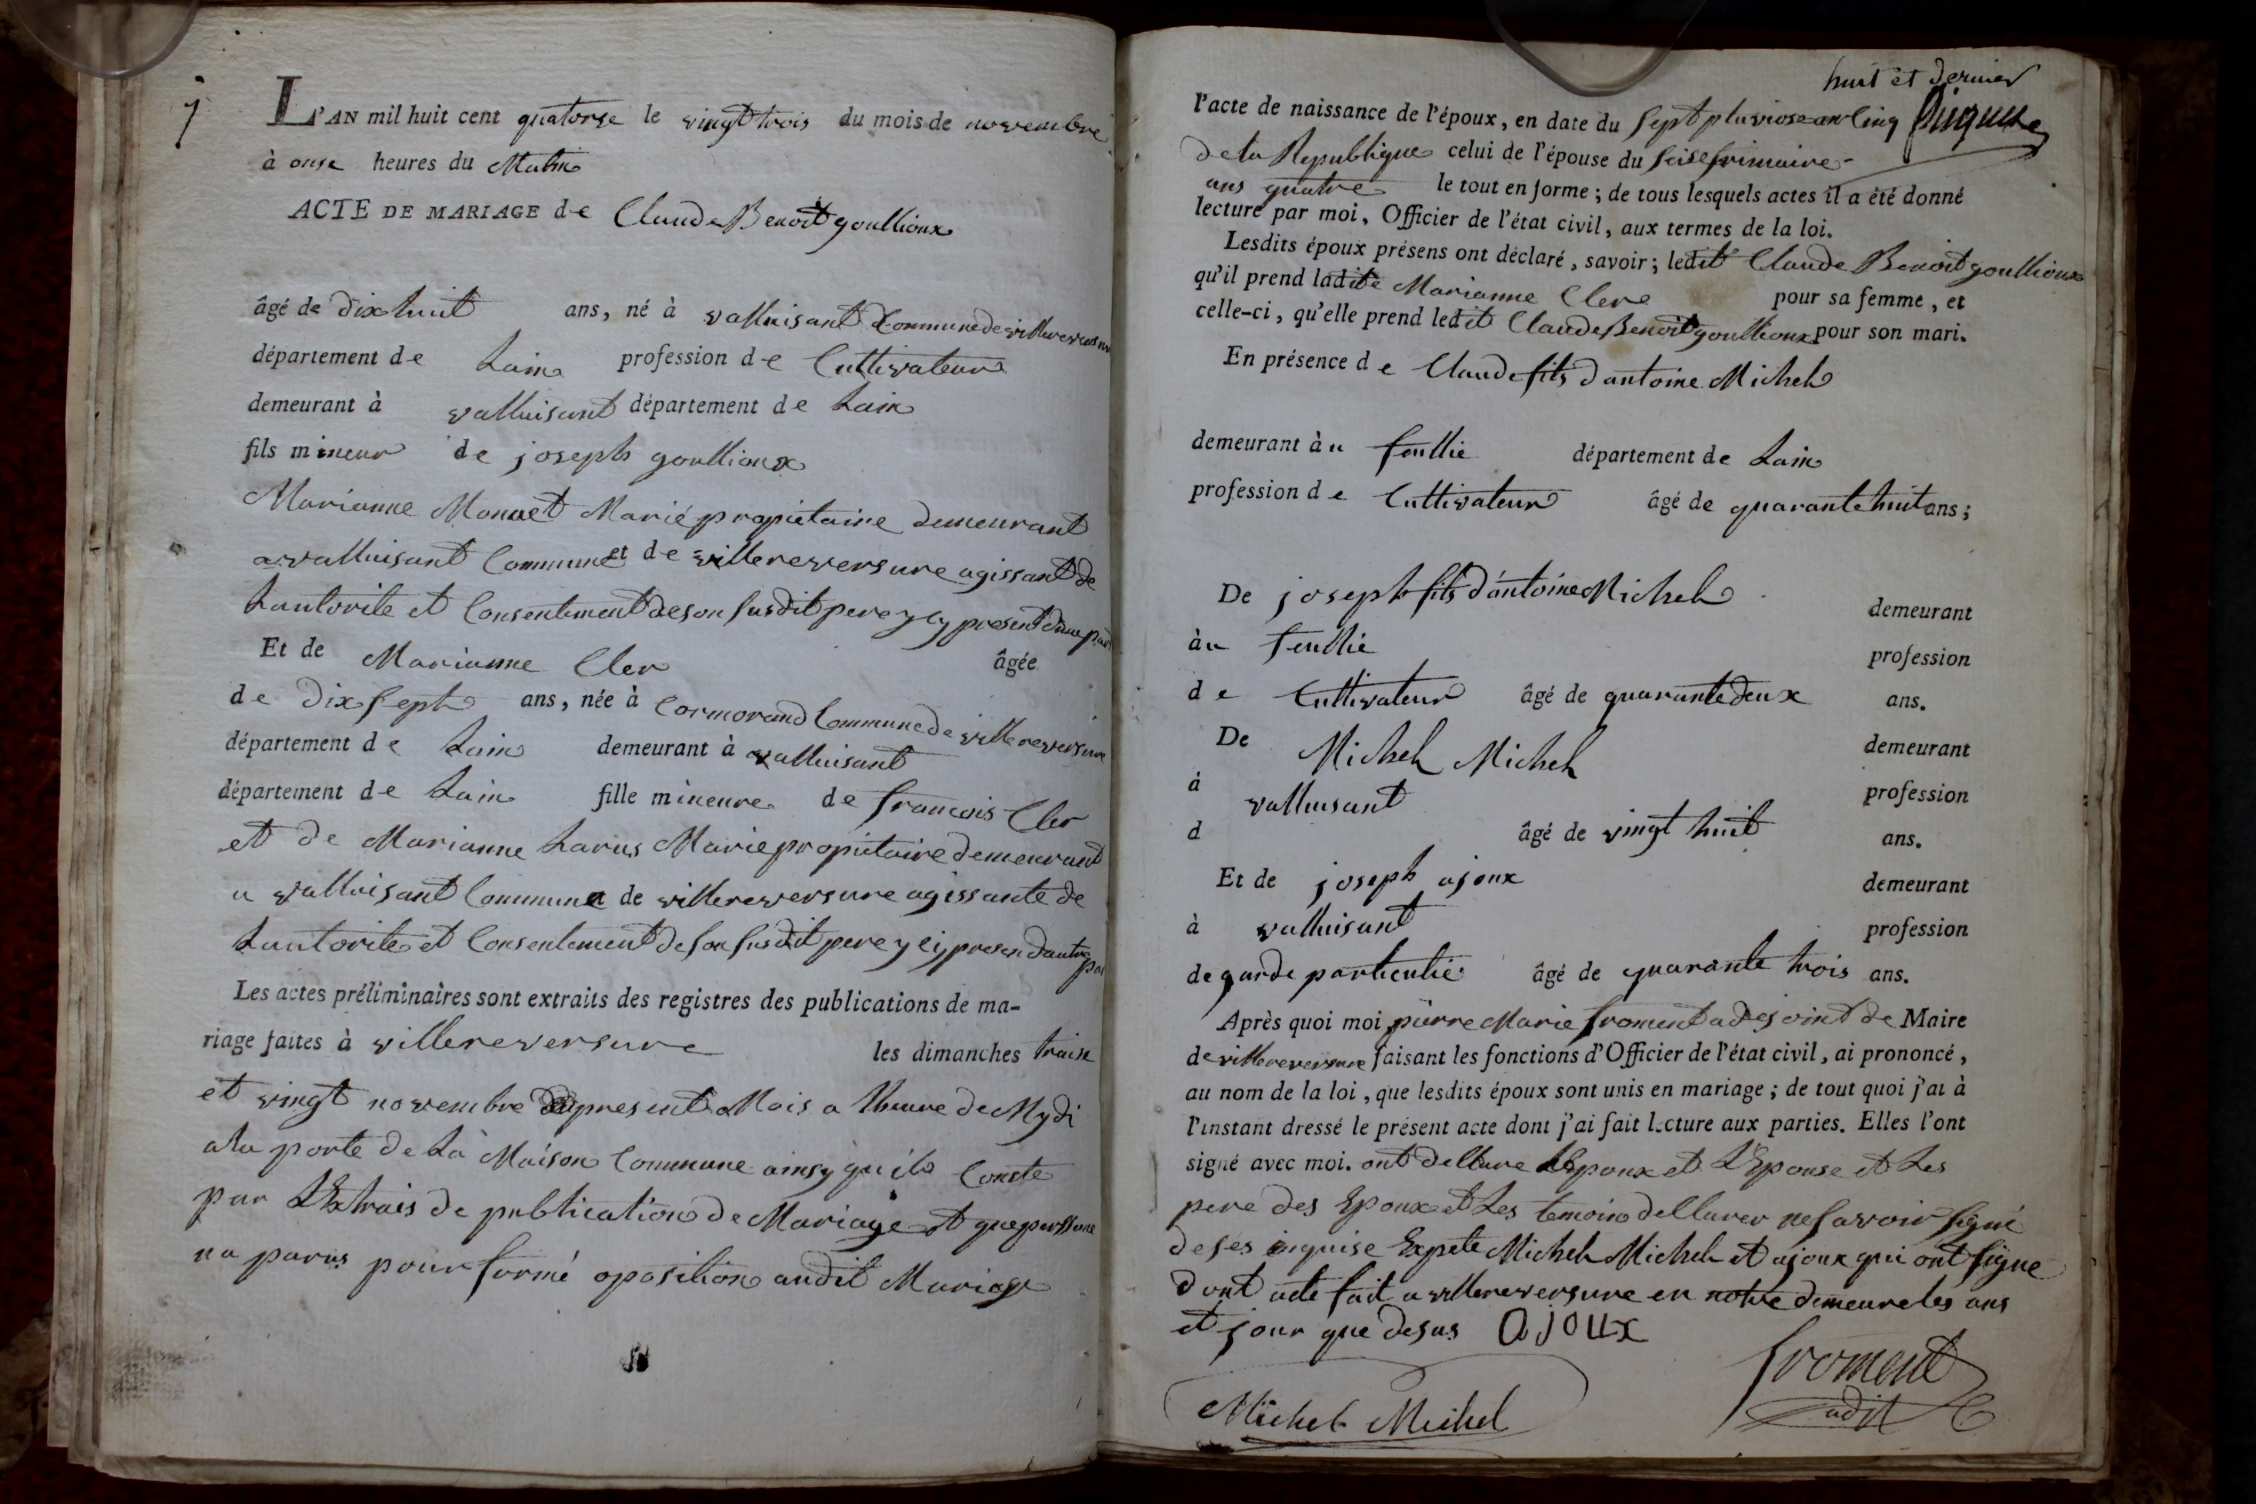 7
L'AN mil huit cent quatorse le vingt trois du mois de novembre
à onse heures du Matin
ACTE DE MARIAGE de Claude Benoit goullioux
âgé de dix huit ans, né à valluisant Commune de villereversure
département de Lain profession de Cultivateur
demeurant à valluisant département de Lain
fils mineur de joseph goullioux
Marianne Monnet Marié propietaire demeurant
a valluisant Commune et de villereversure agissant de
Lautorite et Consentement de son susdit pere y cy present dune part
Et de Marianne Cler âgée
de Dix sept ans, née à Cormorand Commune de villereversure
département de Lain demeurant à valluisant
département de Lain fille mineure de francois Cler
et de Marianne Larus Marie propietaire demeurant
a valluisant Commune de villereversure agissante de
Lautorite et Consentement de son susdit pere y cy presen dautre par
Les actes préliminaires sont extraits des registres des publications de ma-
riage faites à villereversure les dimanches traise
et vingt novembre du present Mois a lheure de Mydi
a la porte de La Maison Commune ainsy qu'ils Conste
par L'Extrais de publication de Mariage et que perssonne
na parus pour formé oposition audit Mariage
huit et dernier
l'acte de naissance de l'époux, en date du sept pluviose an Cinq
de la Republique celui de l'épouse du seise frimaire
ans quatre le tout en forme ; de tous lesquels actes il a été donné
lecture par moi, Officier de l'état civil, aux termes de la loi.
Lesdits époux présens ont déclaré, savoir ; ledit Claude Benoit goullioux
qu'il prend ladite Marianne Clere pour sa femme, et
celle-ci, qu'elle prend ledit Claude Benoit goullioux pour son mari.
En présence de Claude fils d antoine Michel
demeurant àu feullie département de Lain
profession de Cultivateur âgé de quarante huit ans ;
De joseph fils d'antoine Michel demeurant
àu feullié profession
de Cultivateur âgé de quarante deux ans.
De Michel Michel demeurant
à valluisant profession
d âgé de vingt huit ans.
Et de joseph ajoux demeurant
à valluisant profession
de garde particulié âgé de quarante trois ans.
Après quoi moi pierre Marie froment adejoint de Maire
de villereversure faisant les fonctions d'Officier de l'état civil, ai prononcé,
au nom de la loi, que lesdits époux sont unis en mariage ; de tout quoi j'ai à
l'instant dressé le présent acte dont j'ai fait lecture aux parties. Elles l'ont
signé avec moi. ont dellare L'Epoux et L'Epouse et Les
pere des Epoux et Les temoins dellarer ne savoir signé
de ses inquise Expete Michel Michel et ajoux qui ont signe
dont acte fait a villereversure en notre demeure les ans
et jour que desus ajoux
froment
Michel Michel
adjt